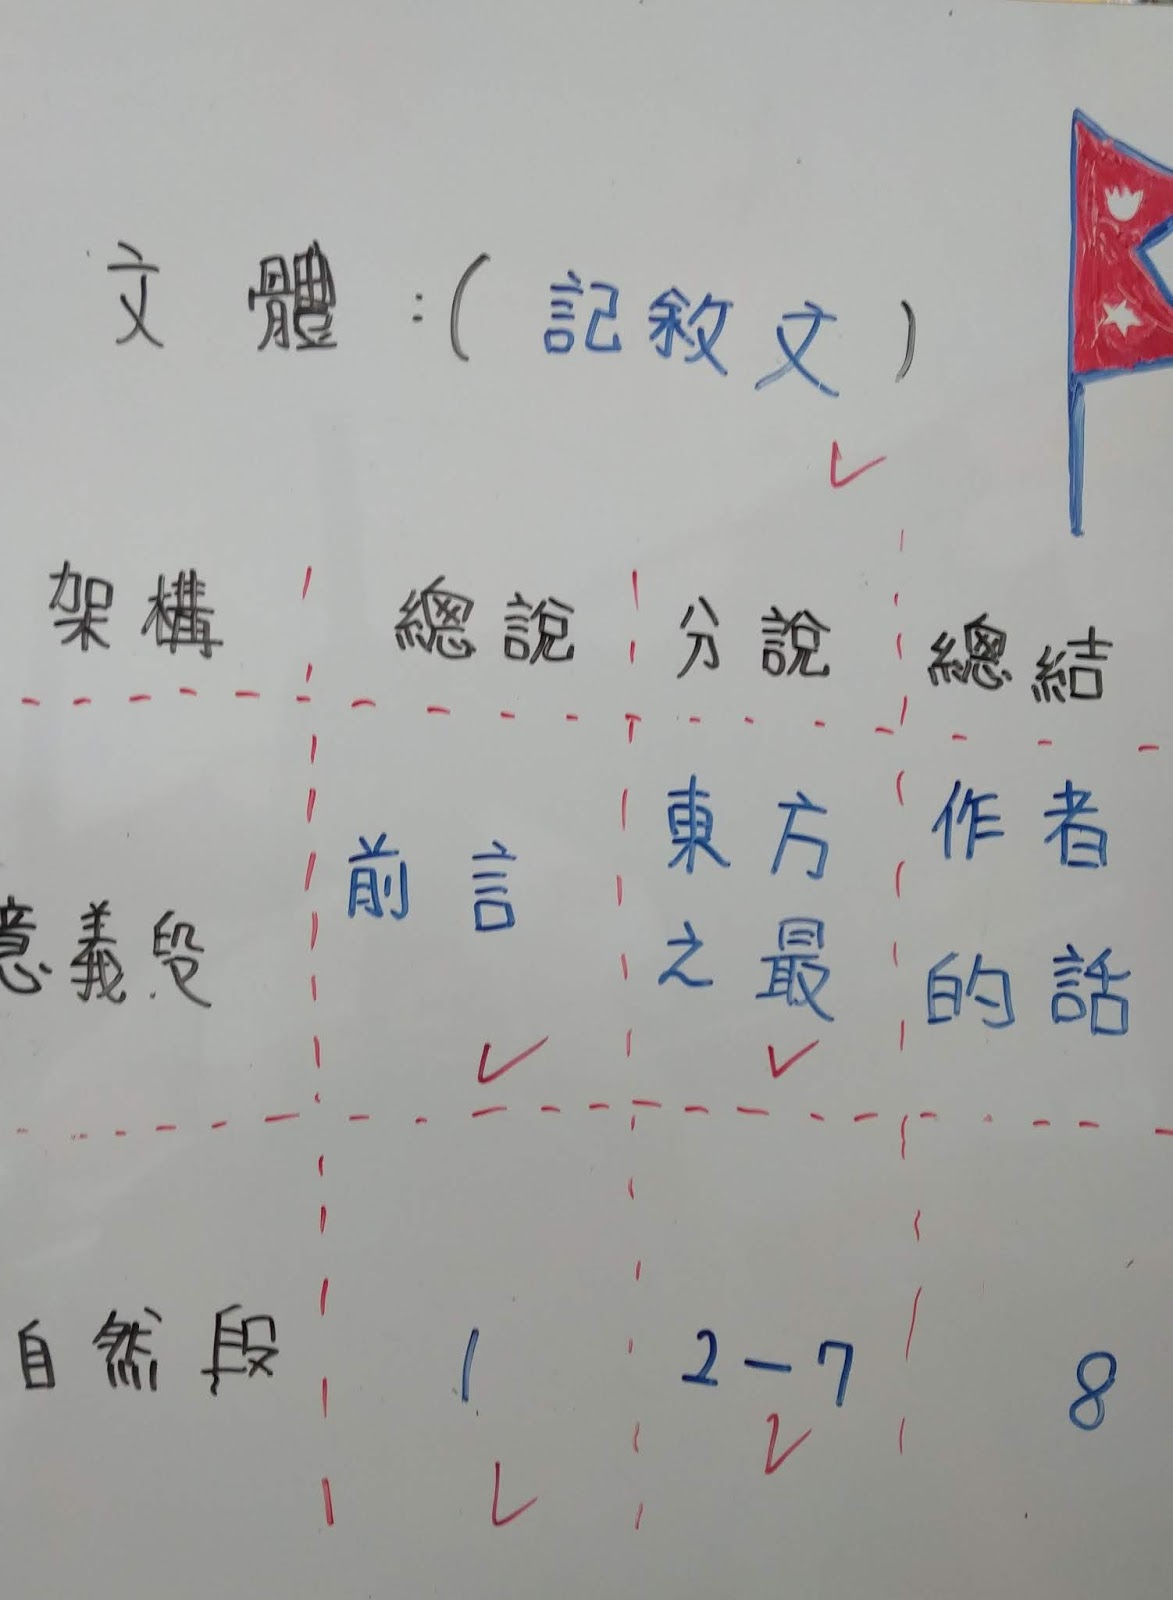 文體：（記敘文）
架構 總說 分說 總結
意義段 前言 東方之最 作者的話
自然段 1 2-7 8